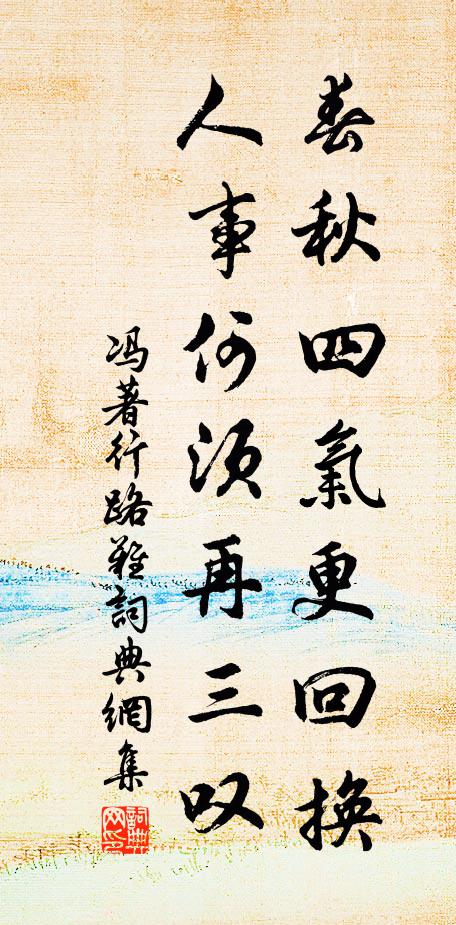 春秋四氣更回換
人事何須再三叹
冯著行路難詞典網集
詞典网印